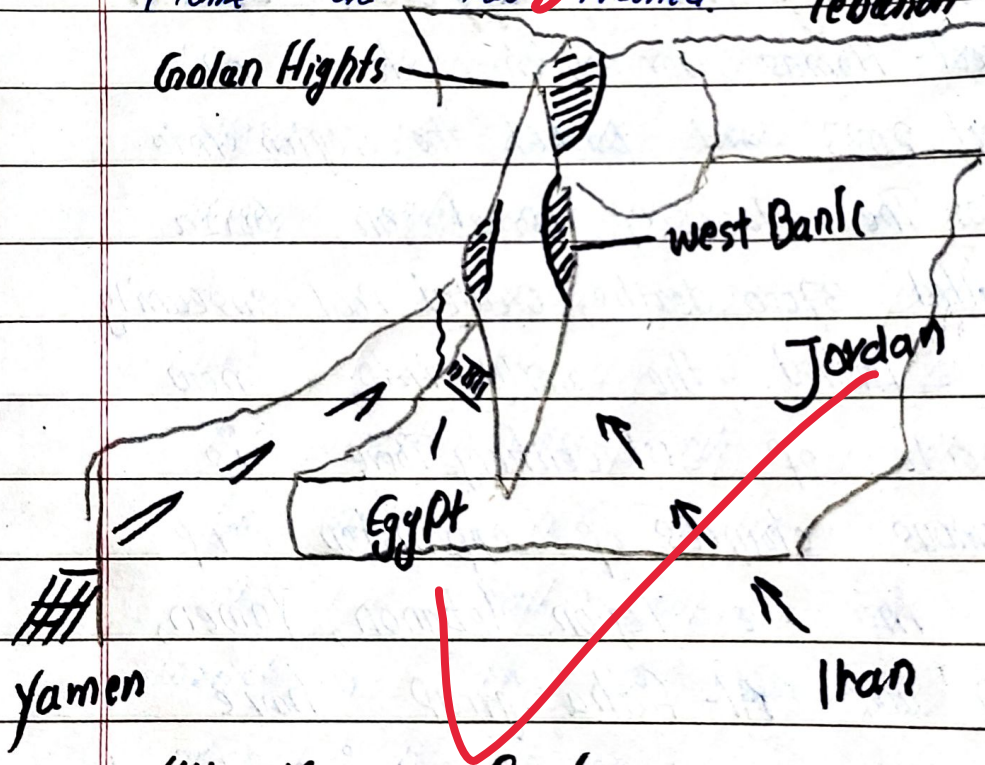 lebanon
Golan Hights
west Bank
Jordan
Egypt
Yamen
Iran